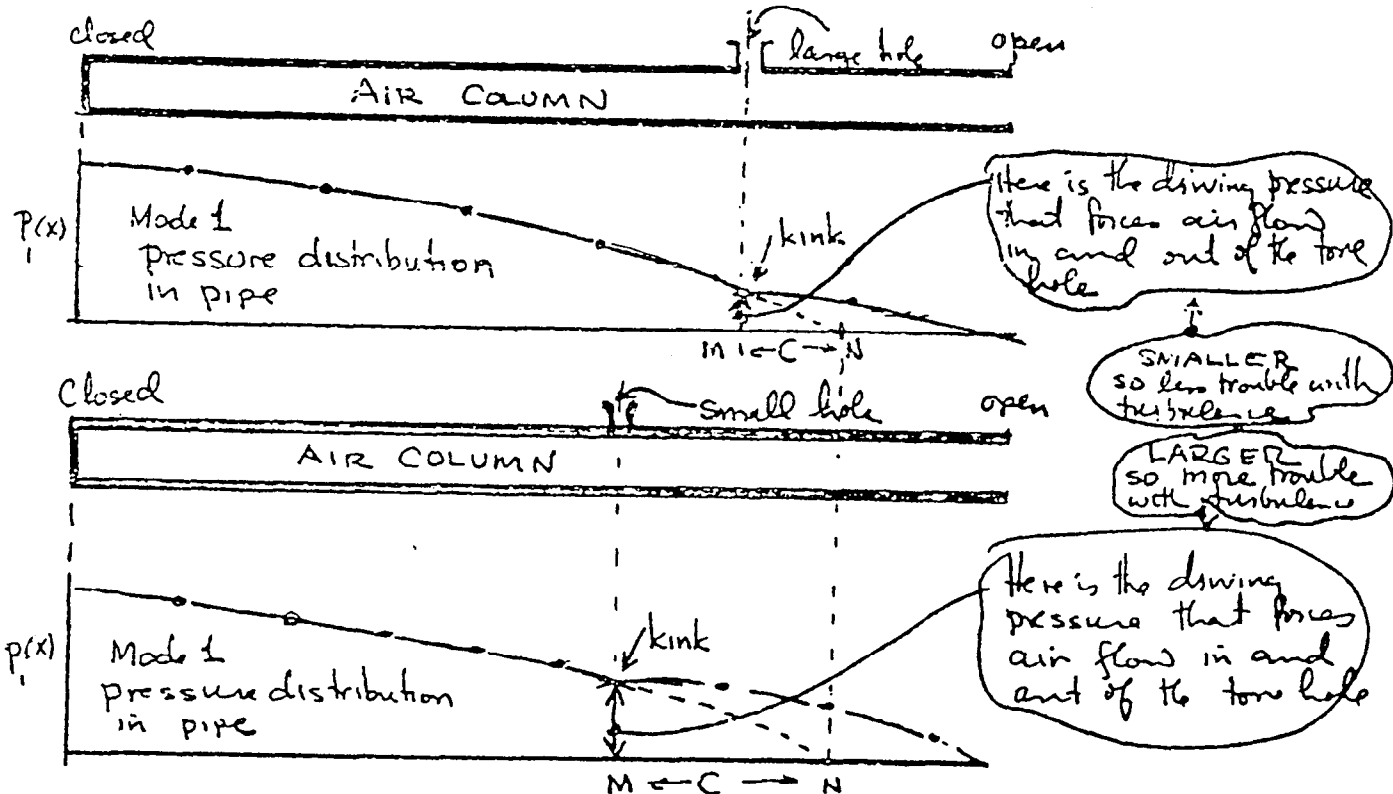 closed
large hole
open
AIR COLUMN
P(x)
1
Mode 1
pressure distribution
in pipe
kink
Here is the driving pressure
that forces air flow
in and out of the tone
hole
M ← C → N
SMALLER
so less trouble with
turbulence
Closed
small hole
open
AIR COLUMN
LARGER
so more trouble
with turbulence
p(x)
1
Mode 1
pressure distribution
in pipe
kink
Here is the driving
pressure that forces
air flow in and
out of the tone hole
M ← C → N